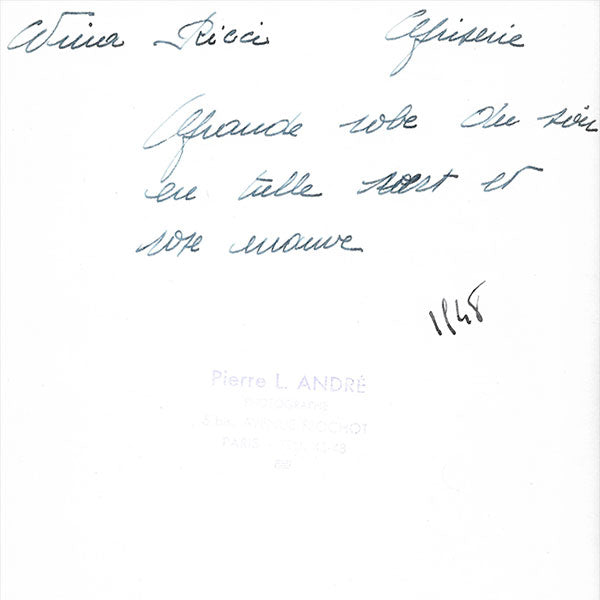 Nina Ricci Griserie
Grande robe du soir
en tulle vert et
rose mauve
1948
Pierre L. ANDRÉ
PHOTOGRAPHE
5 bis, AVENUE FROCHOT
PARIS